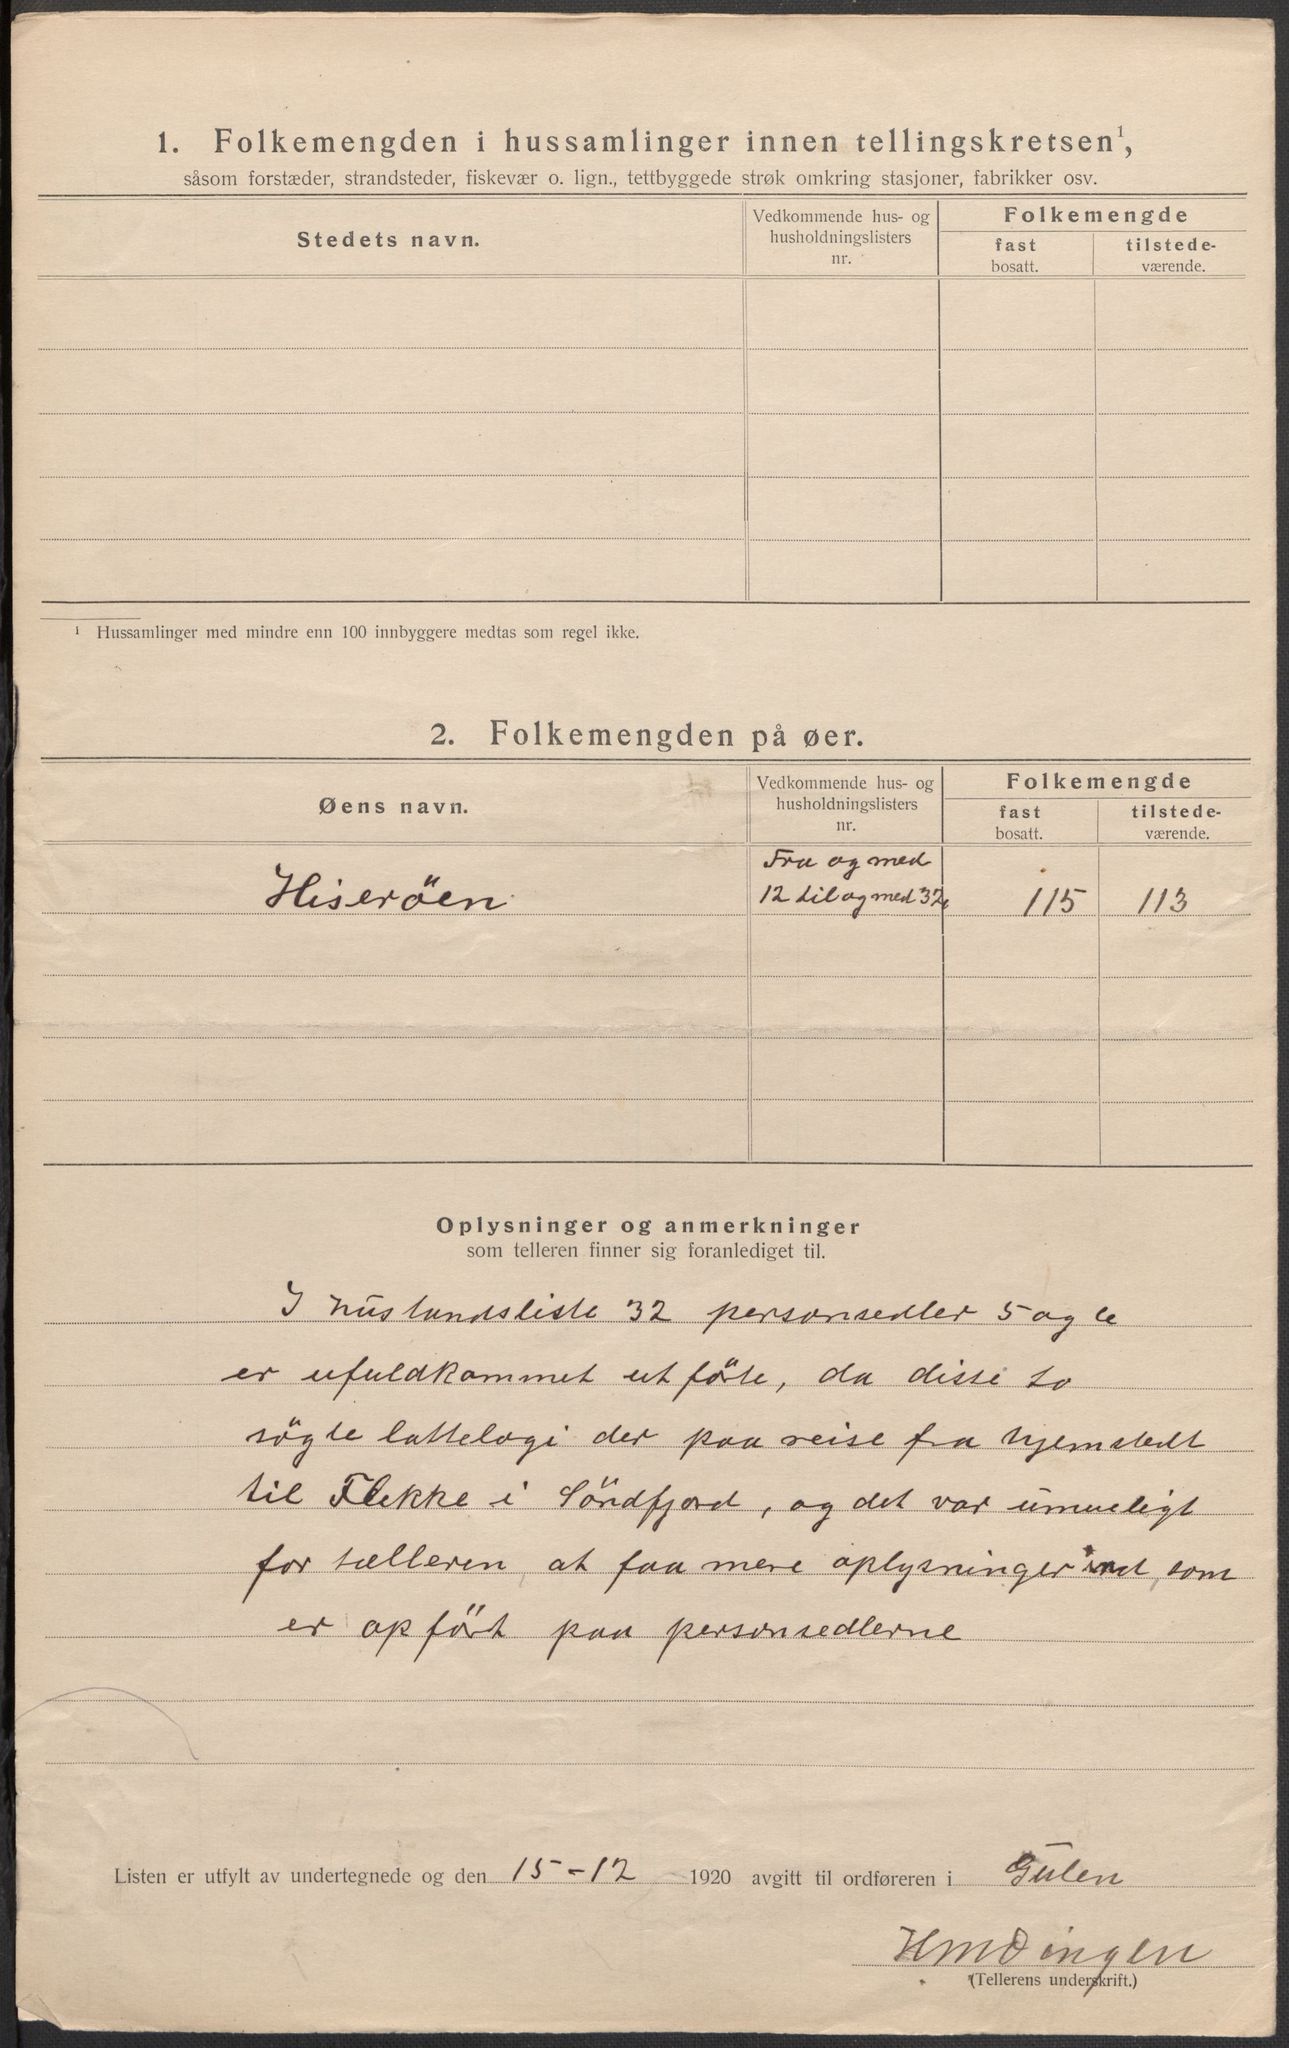 1. Folkemengden i hussamlinger innen tellingskretsen¹,
såsom forstæder, strandsteder, fiskevær o. lign., tettbyggede strøk omkring stasjoner, fabrikker osv.
Stedets navn.
Vedkommende hus- og
husholdningslisters
nr.
Folkemengde
fast
bosatt.
tilstede-
værende.
¹ Hussamlinger med mindre enn 100 innbyggere medtas som regel ikke.
2. Folkemengden på øer.
Øens navn.
Vedkommende hus- og
husholdningslisters
nr.
Folkemengde
fast
bosatt.
tilstede-
værende.
Hiseröen
Fra og med
12 til og med 32
115
113
Oplysninger og anmerkninger
som telleren finner sig foranlediget til.
I huslandsliste 32 personsedler 5 og 6
er ufuldkommet utförte, da disse to
sögte lattelogi der paa reise fra hjemstedt
til Flekke i Söndfjord, og det var umueligt
for tælleren, at faa mere oplysninger ind, som
er opfört paa personsedlerne
Listen er utfylt av undertegnede og den 15-12 1920 avgitt til ordføreren i Gulen
(Tellerens underskrift.)